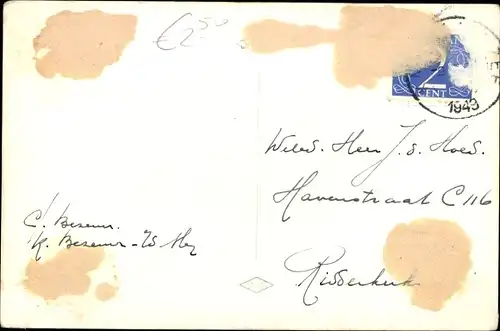 €2.50
2
CENT
1943
Weled. Heer J. d. Hoed.
Havenstraat C 116
Ridderkerk
C. Bezemer.
K. Bezemer-